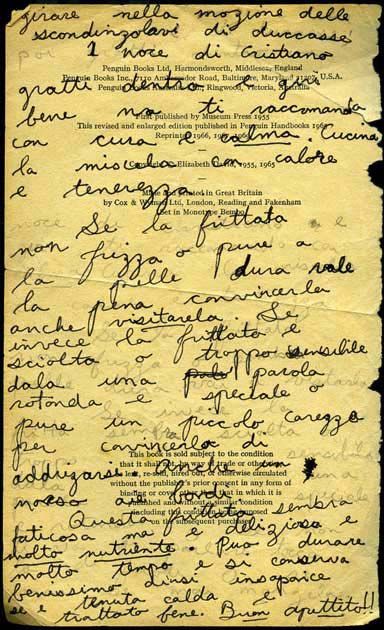 girare nella mozione delle
scondinzolavi di duccasse
1 noce di Cristiano
Penguin Books Ltd, Harmondsworth, Middlesex, England
Penguin Books Inc., 7110 Ambassador Road, Baltimore, Maryland 21207, U.S.A.
Penguin Books Ringwood, Victoria, Australia
gratti dentro la
bene ma ti raccomando
First published by Museum Press 1955
This revised and enlarged edition published in Penguin Handbooks
Reprinted 1966,
con cura e calma. Cucina
la miscela con calore
Copyright © Elizabeth 1955, 1965
e tenerezza.
Made and Printed in Great Britain
by Cox & Wyman Ltd, London, Reading and Fakenham
Set in Monotype Bembo
Se la fruttata
non frizza o pure a
la pelle dura vale
la pena convincerla
anche visitarela. Se
invece la fruttata e
sciolta o troppo sensibile
dala una parola
rotonda e speciale o
pure un piccolo carezzo
per convincerla di
This book is sold subject to the condition
addrizarse. Anche un
that it shall not, by way of trade or otherwise,
be lent, re-sold, hired out, or otherwise circulated
without the publisher's prior consent in any form of
binding or cover other than that in which it is
morso ai bordi.
published and without a similar condition
including this condition being imposed
on the subsequent purchaser
Questa fruttata sembra
faticosa ma e deliziosa e
molto nutriente. Puo durare
molto tempo e si conserva
benessimo dinsi insaporice
se e tenuta calda e
trattato bene. Buon apettito!!